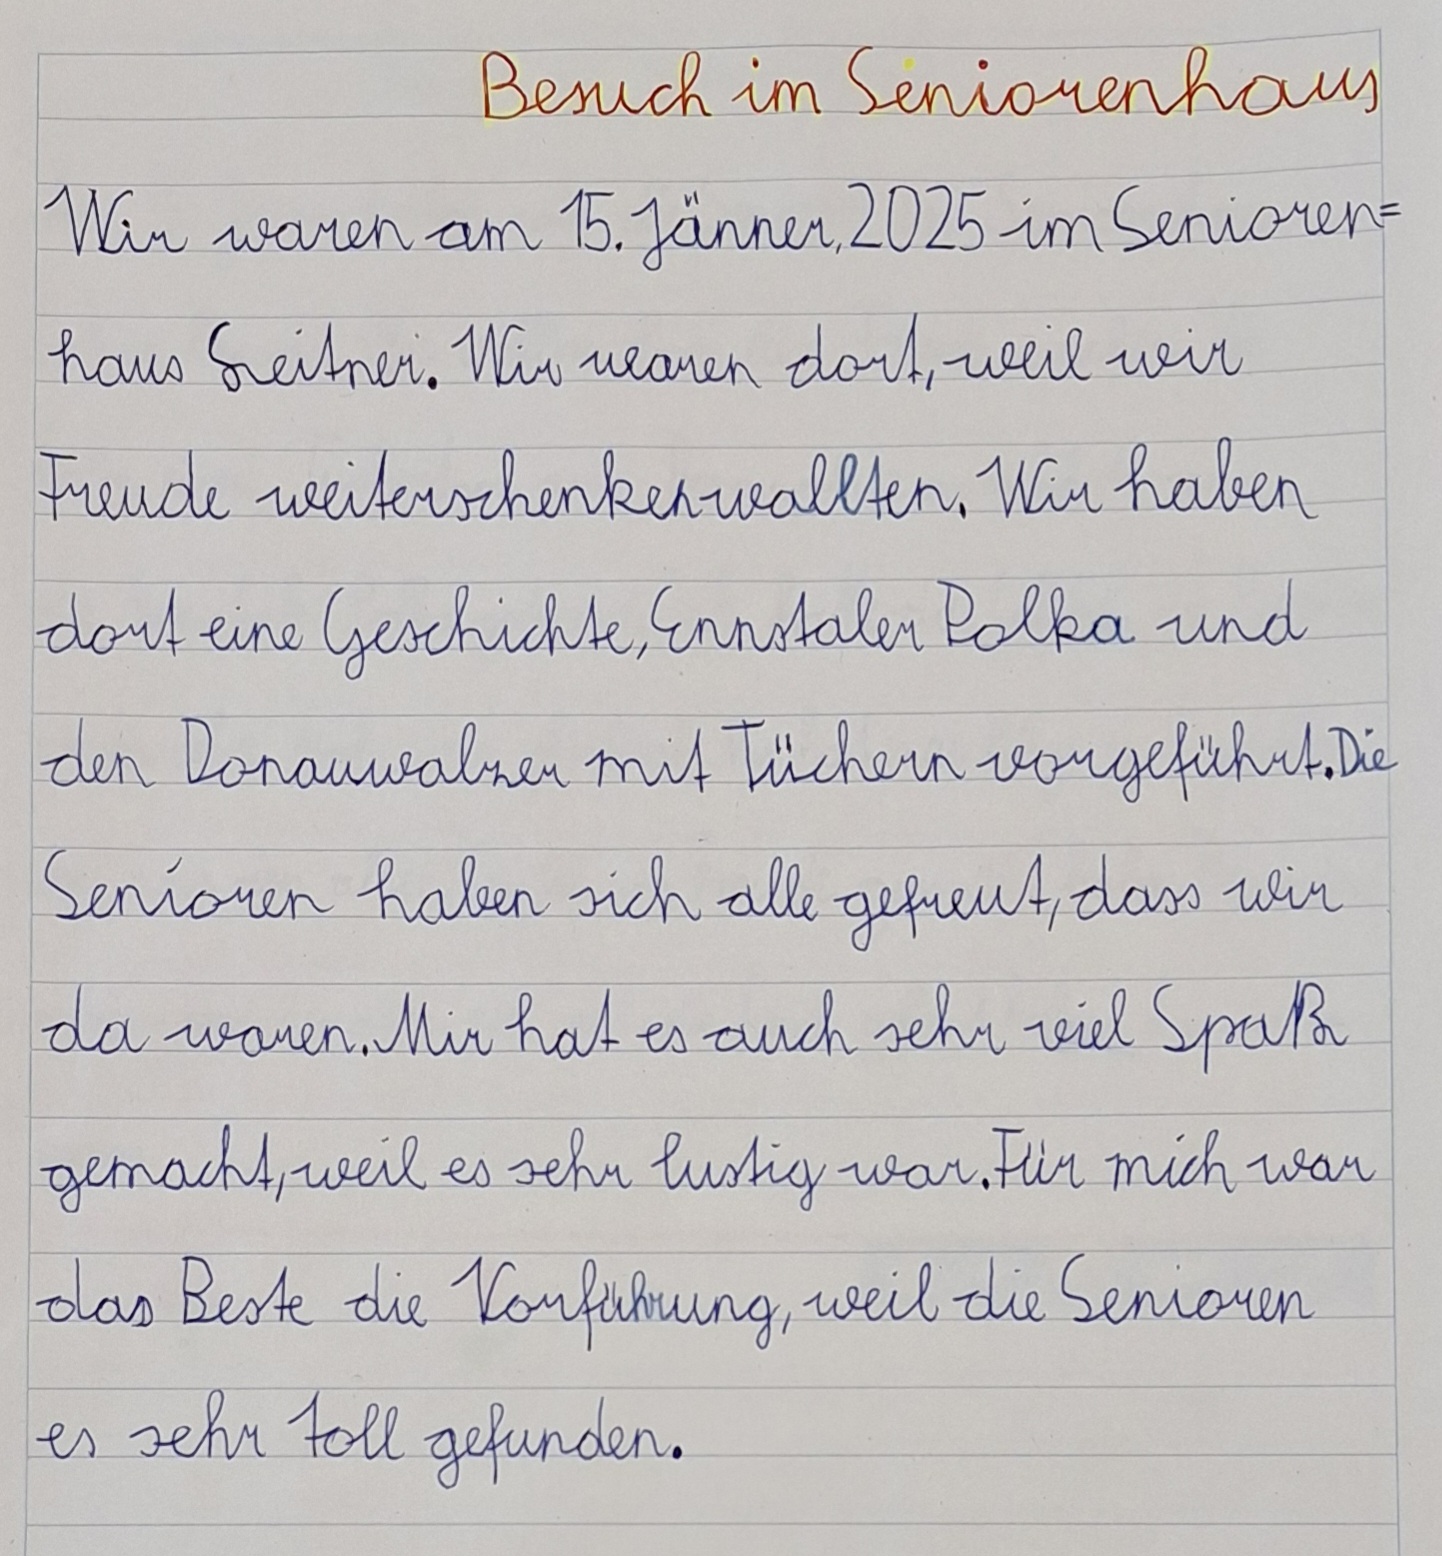 Besuch im Seniorenhaus
Wir waren am 15. Jänner, 2025 im Senioren=
haus Leitner. Wir waren dort, weil wir
Freude weiterschenken wollten. Wir haben
dort eine Geschichte, Ennstaler Polka und
den Donauwalzer mit Tüchern vorgeführt. Die
Senioren haben sich alle gefreut, dass wir
da waren. Mir hat es auch sehr viel Spaß
gemacht, weil es sehr lustig war. Für mich war
das Beste die Vorführung, weil die Senioren
es sehr toll gefunden.